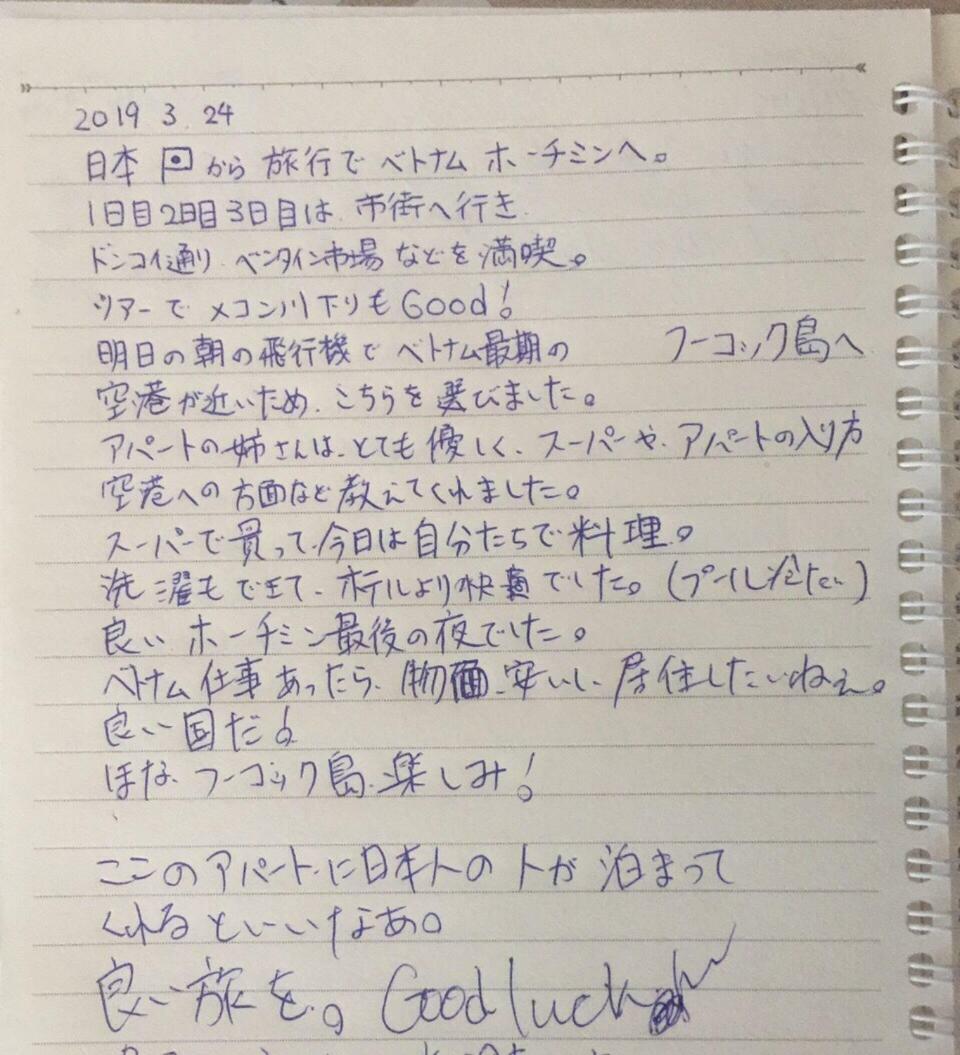 2019 3. 24
日本 から 旅行で ベトナム ホーチミンへ。
1日目2日目3日目は 市街へ行き
ドンコイ通り ベンタイン市場 などを 満喫。
ツアーで メコン川下りも Good!
明日の朝の飛行機で ベトナム最期の フーコック島へ
空港が近いため、こちらを 選びました。
アパートの姉さんは、とても優しく、スーパーや、アパートの入り方
空港への方面など教えてくれました。
スーパーで買って、今日は自分たちで料理。
洗濯もできて、ホテルより快適でした。(プール冷たい)
良い ホーチミン最後の夜でした。
ベトナム仕事あったら、物価、安いし、居住したいねぇ。
良い国だ!
ほな、フーコック島、楽しみ!
ここのアパートに日本人の人が 泊まって
くれるといいなあ。
良い旅を。 Good luck